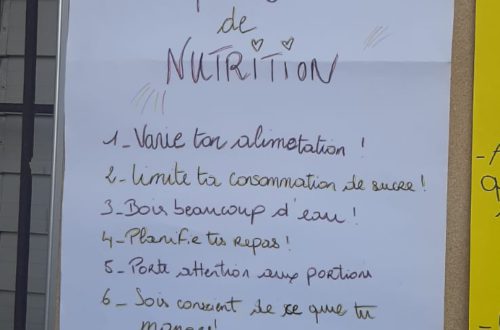 de
NUTRITION
1- Varie ton alimetation !
2- limite ta consommation de sucre !
3- Bois beaucoup d'eau !
4- Planifie tes repas !
5- Porte attention aux portions
6- Sois conscient de ce que tu
manges!